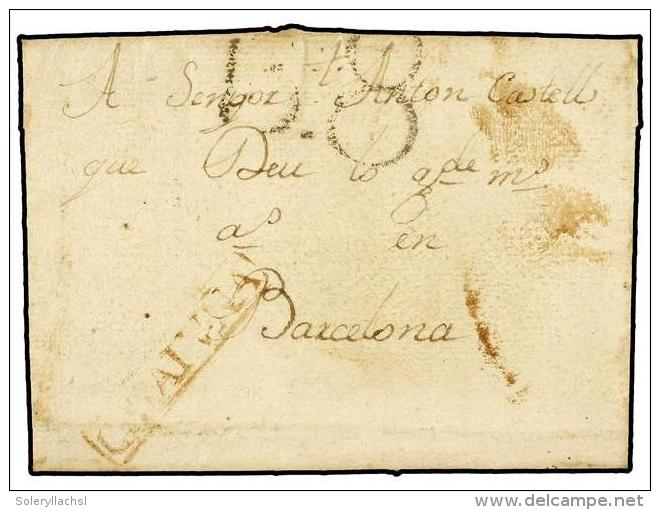 8
A Sengor Anton Castell
que Deu lo g.de m.s
a.s en
Barcelona
Soleryllachsl
delcampe.net